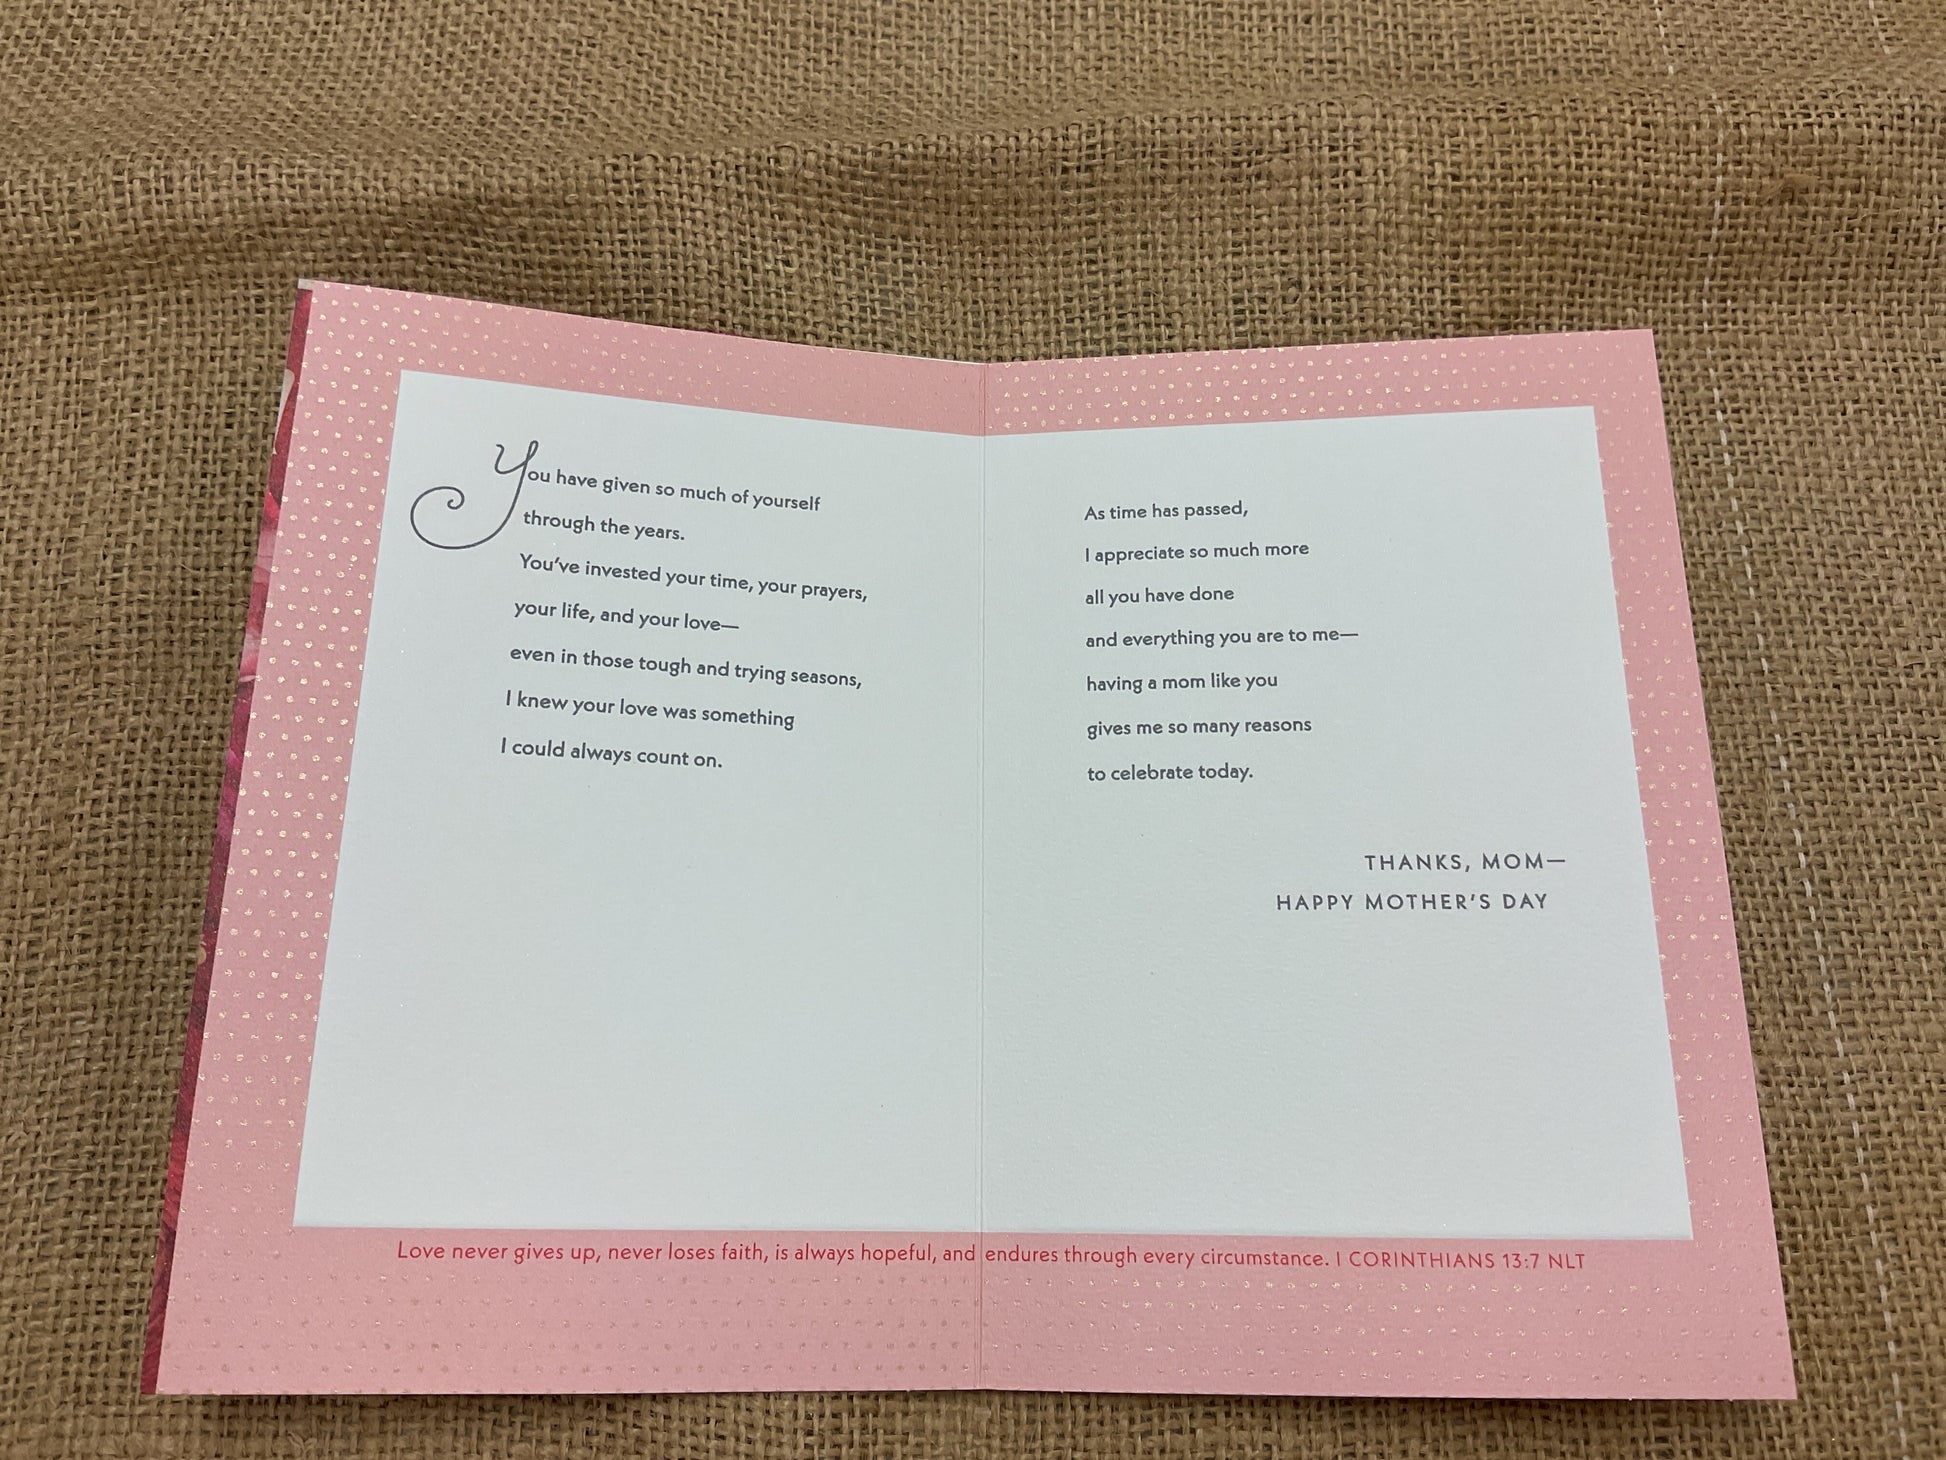 You have given so much of yourself
through the years.
You've invested your time, your prayers,
your life, and your love—
even in those tough and trying seasons,
I knew your love was something
I could always count on.
As time has passed,
I appreciate so much more
all you have done
and everything you are to me—
having a mom like you
gives me so many reasons
to celebrate today.
THANKS, MOM—
HAPPY MOTHER'S DAY
Love never gives up, never loses faith, is always hopeful, and endures through every circumstance. I CORINTHIANS 13:7 NLT